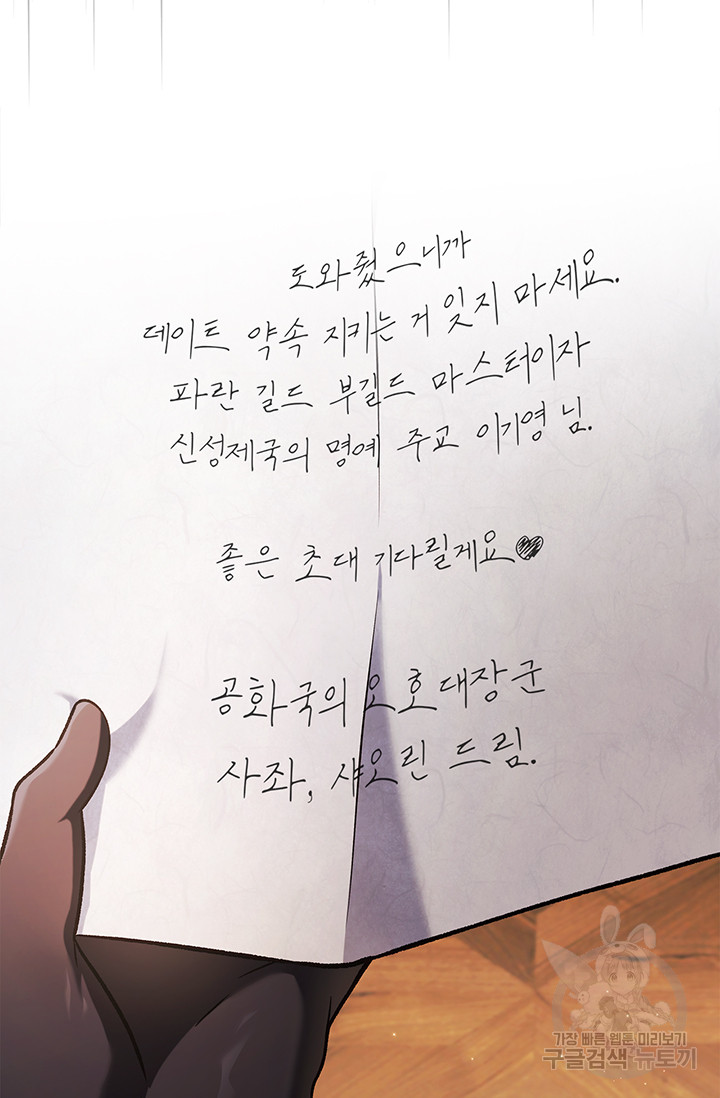 도와줬으니까
데이트 약속 지키는 거 잊지 마세요.
파란 길드 부길드 마스터이자
신성제국의 명예 주교 이기영 님.
좋은 초대 기다릴게요♥
공화국의 오호대장군
사좌, 샤오린 드림.
가장 빠른 웹툰 미리보기
구글검색 뉴토끼